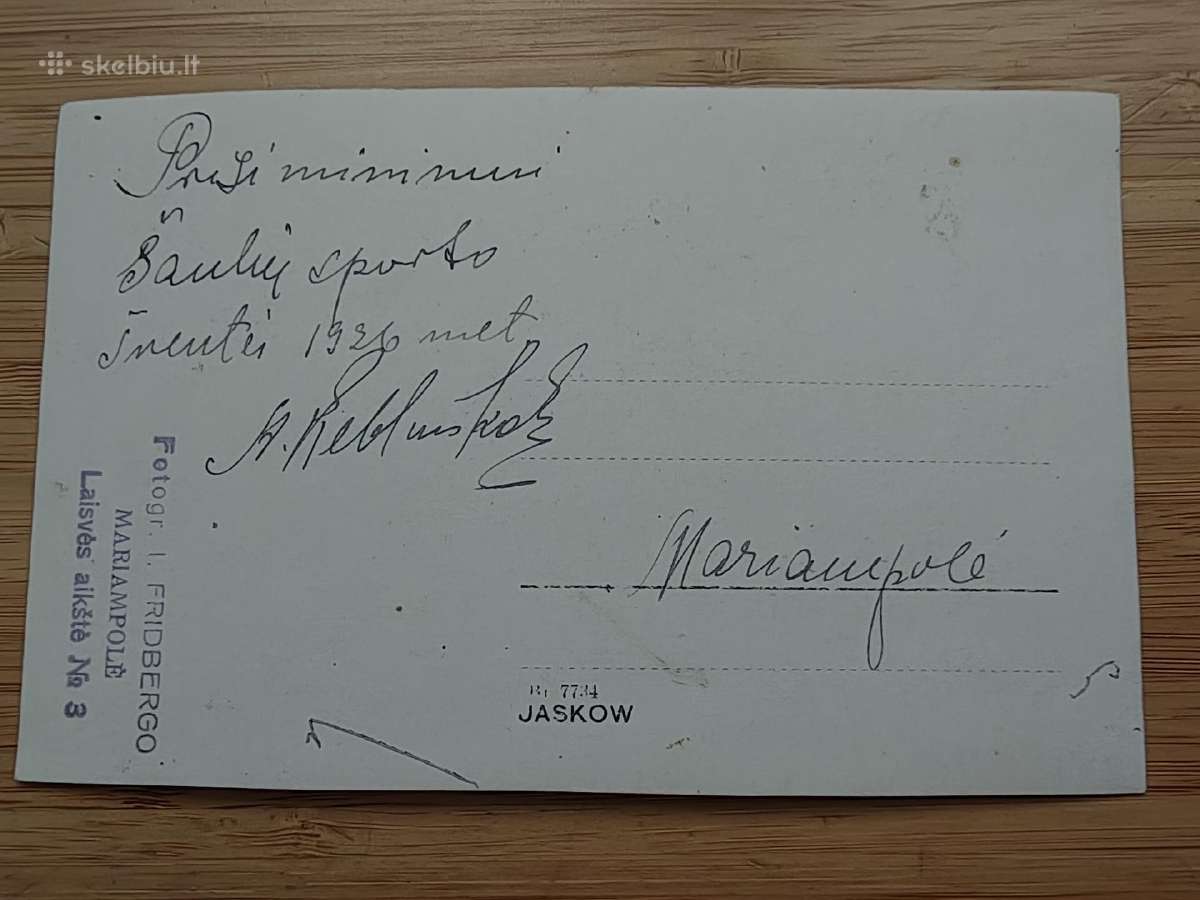 skelbiu.lt
Prisiminimui
Šaulių sporto
šventėi 1926 met
Mariampolė
Fotogr. I. FRIDBERGO
MARIAMPOLĖ
Laisvės aikštė № 3
7734
JASKOW